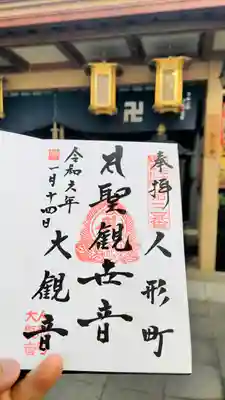 奉拝
人形町
聖觀世音
大觀音
令和六年
一月十四日
卍